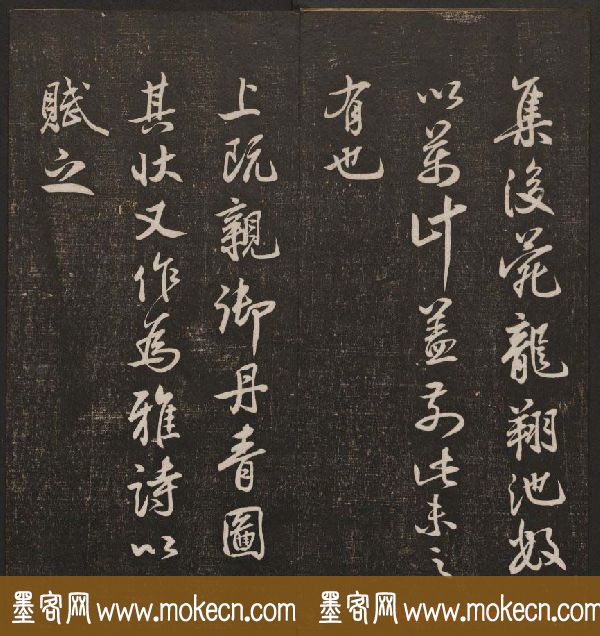 集後苑龍翔池數
以萬計蓋前此未之
有也
上既親御丹青圖
其狀又作為雅詩以
賦之
墨客网 www.mokecn.com 墨客网 www.mokecn.com